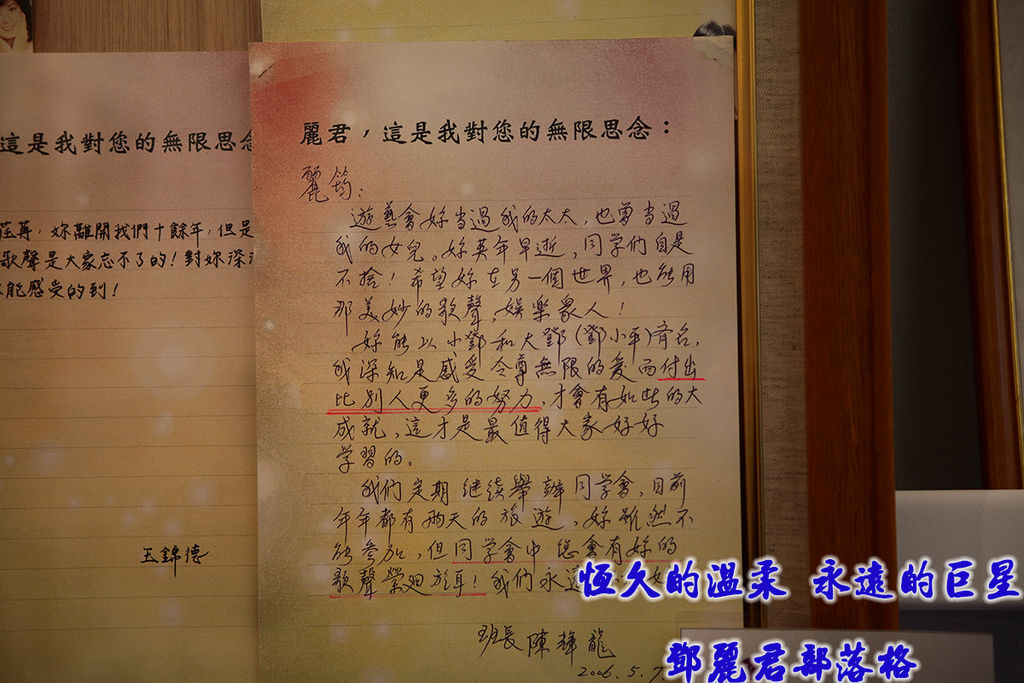 這是我對您的無限思念
妳離開我們十餘年,但是
歌聲是大家忘不了的!對妳深
能感受的到!
王錦德
麗君,這是我對您的無限思念:
麗筠:
遊藝會妳当過我的太太,也曾当過
我的女兒。妳英年早逝,同学们自是
不捨!希望妳在另一個世界,也能用
那美妙的歌聲,娛樂眾人!
妳能以小鄧和大鄧(鄧小平)齊名,
我深知是感受令尊無限的愛而付出
比别人更多的努力,才會有如此的大
成就,這才是最值得大家好好
学習的。
我们定期继续舉辦同学會,目前
年年都有兩天的旅遊,妳雖然不
能參加,但同学會中總會有妳的
歌聲縈迴於耳!我们永遠
班長 陳輝龍
2006.5.7
恆久的溫柔 永遠的巨星
鄧麗君部落格